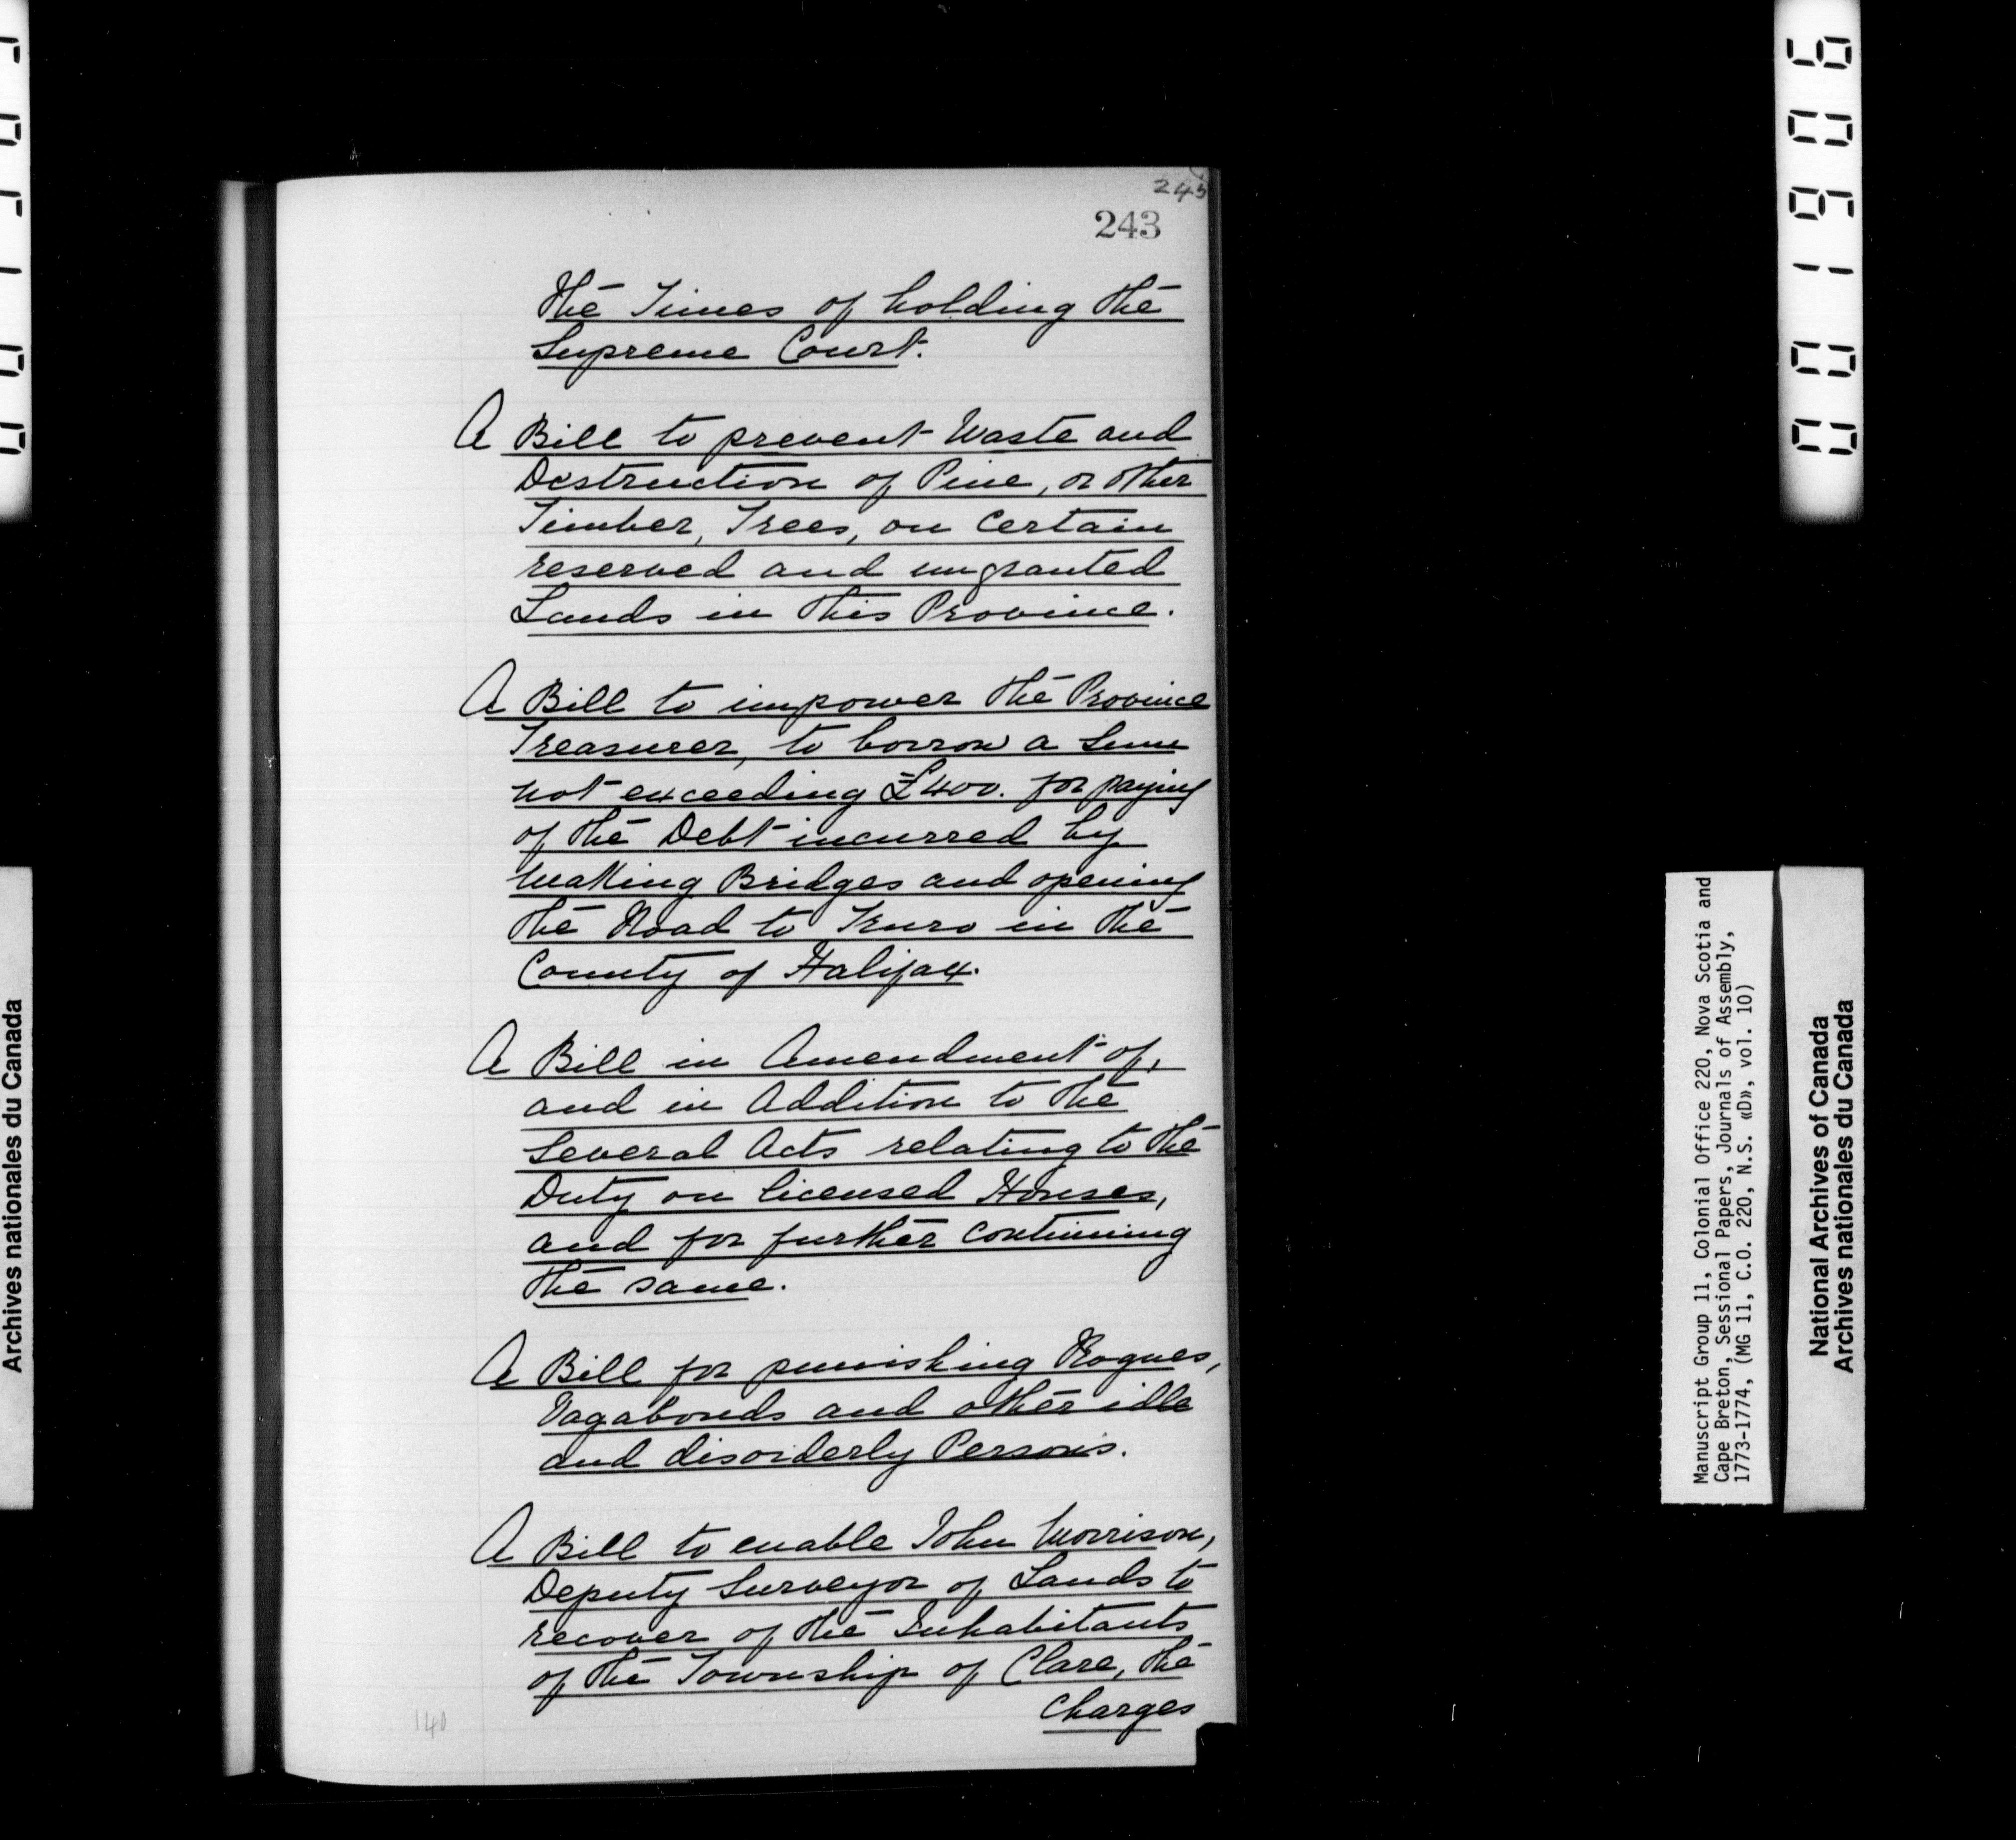 243
243
The Times of holding the
Supreme Court.
A Bill to prevent Waste and
Destruction of Pine, or other
Timber, Trees, on Certain
reserved and ungranted
Lands in this Province.
A Bill to impower the Province
Treasurer, to borrow a Sum
not exceeding £400. for paying
of the Debt incurred by
making Bridges and opening
the Road to Truro in the
County of Halifax.
A Bill in Amendment of,
and in Addition to the
Several Acts relating to the
Duty on licensed Houses,
and for further continuing
the same.
A Bill for punishing Rogues,
Vagabonds and other idle
and disorderly Persons.
A Bill to enable John Morrison,
Deputy Surveyor of Lands to
recover of the Inhabitants
of the Township of Clare, the
Charges
140
001906
Manuscript Group 11, Colonial Office 220, Nova Scotia and
Cape Breton, Sessional Papers, Journals of Assembly,
1773-1774, (MG 11, C.O. 220, N.S. «D», vol. 10)
National Archives of Canada
Archives nationales du Canada
Archives nationales du Canada